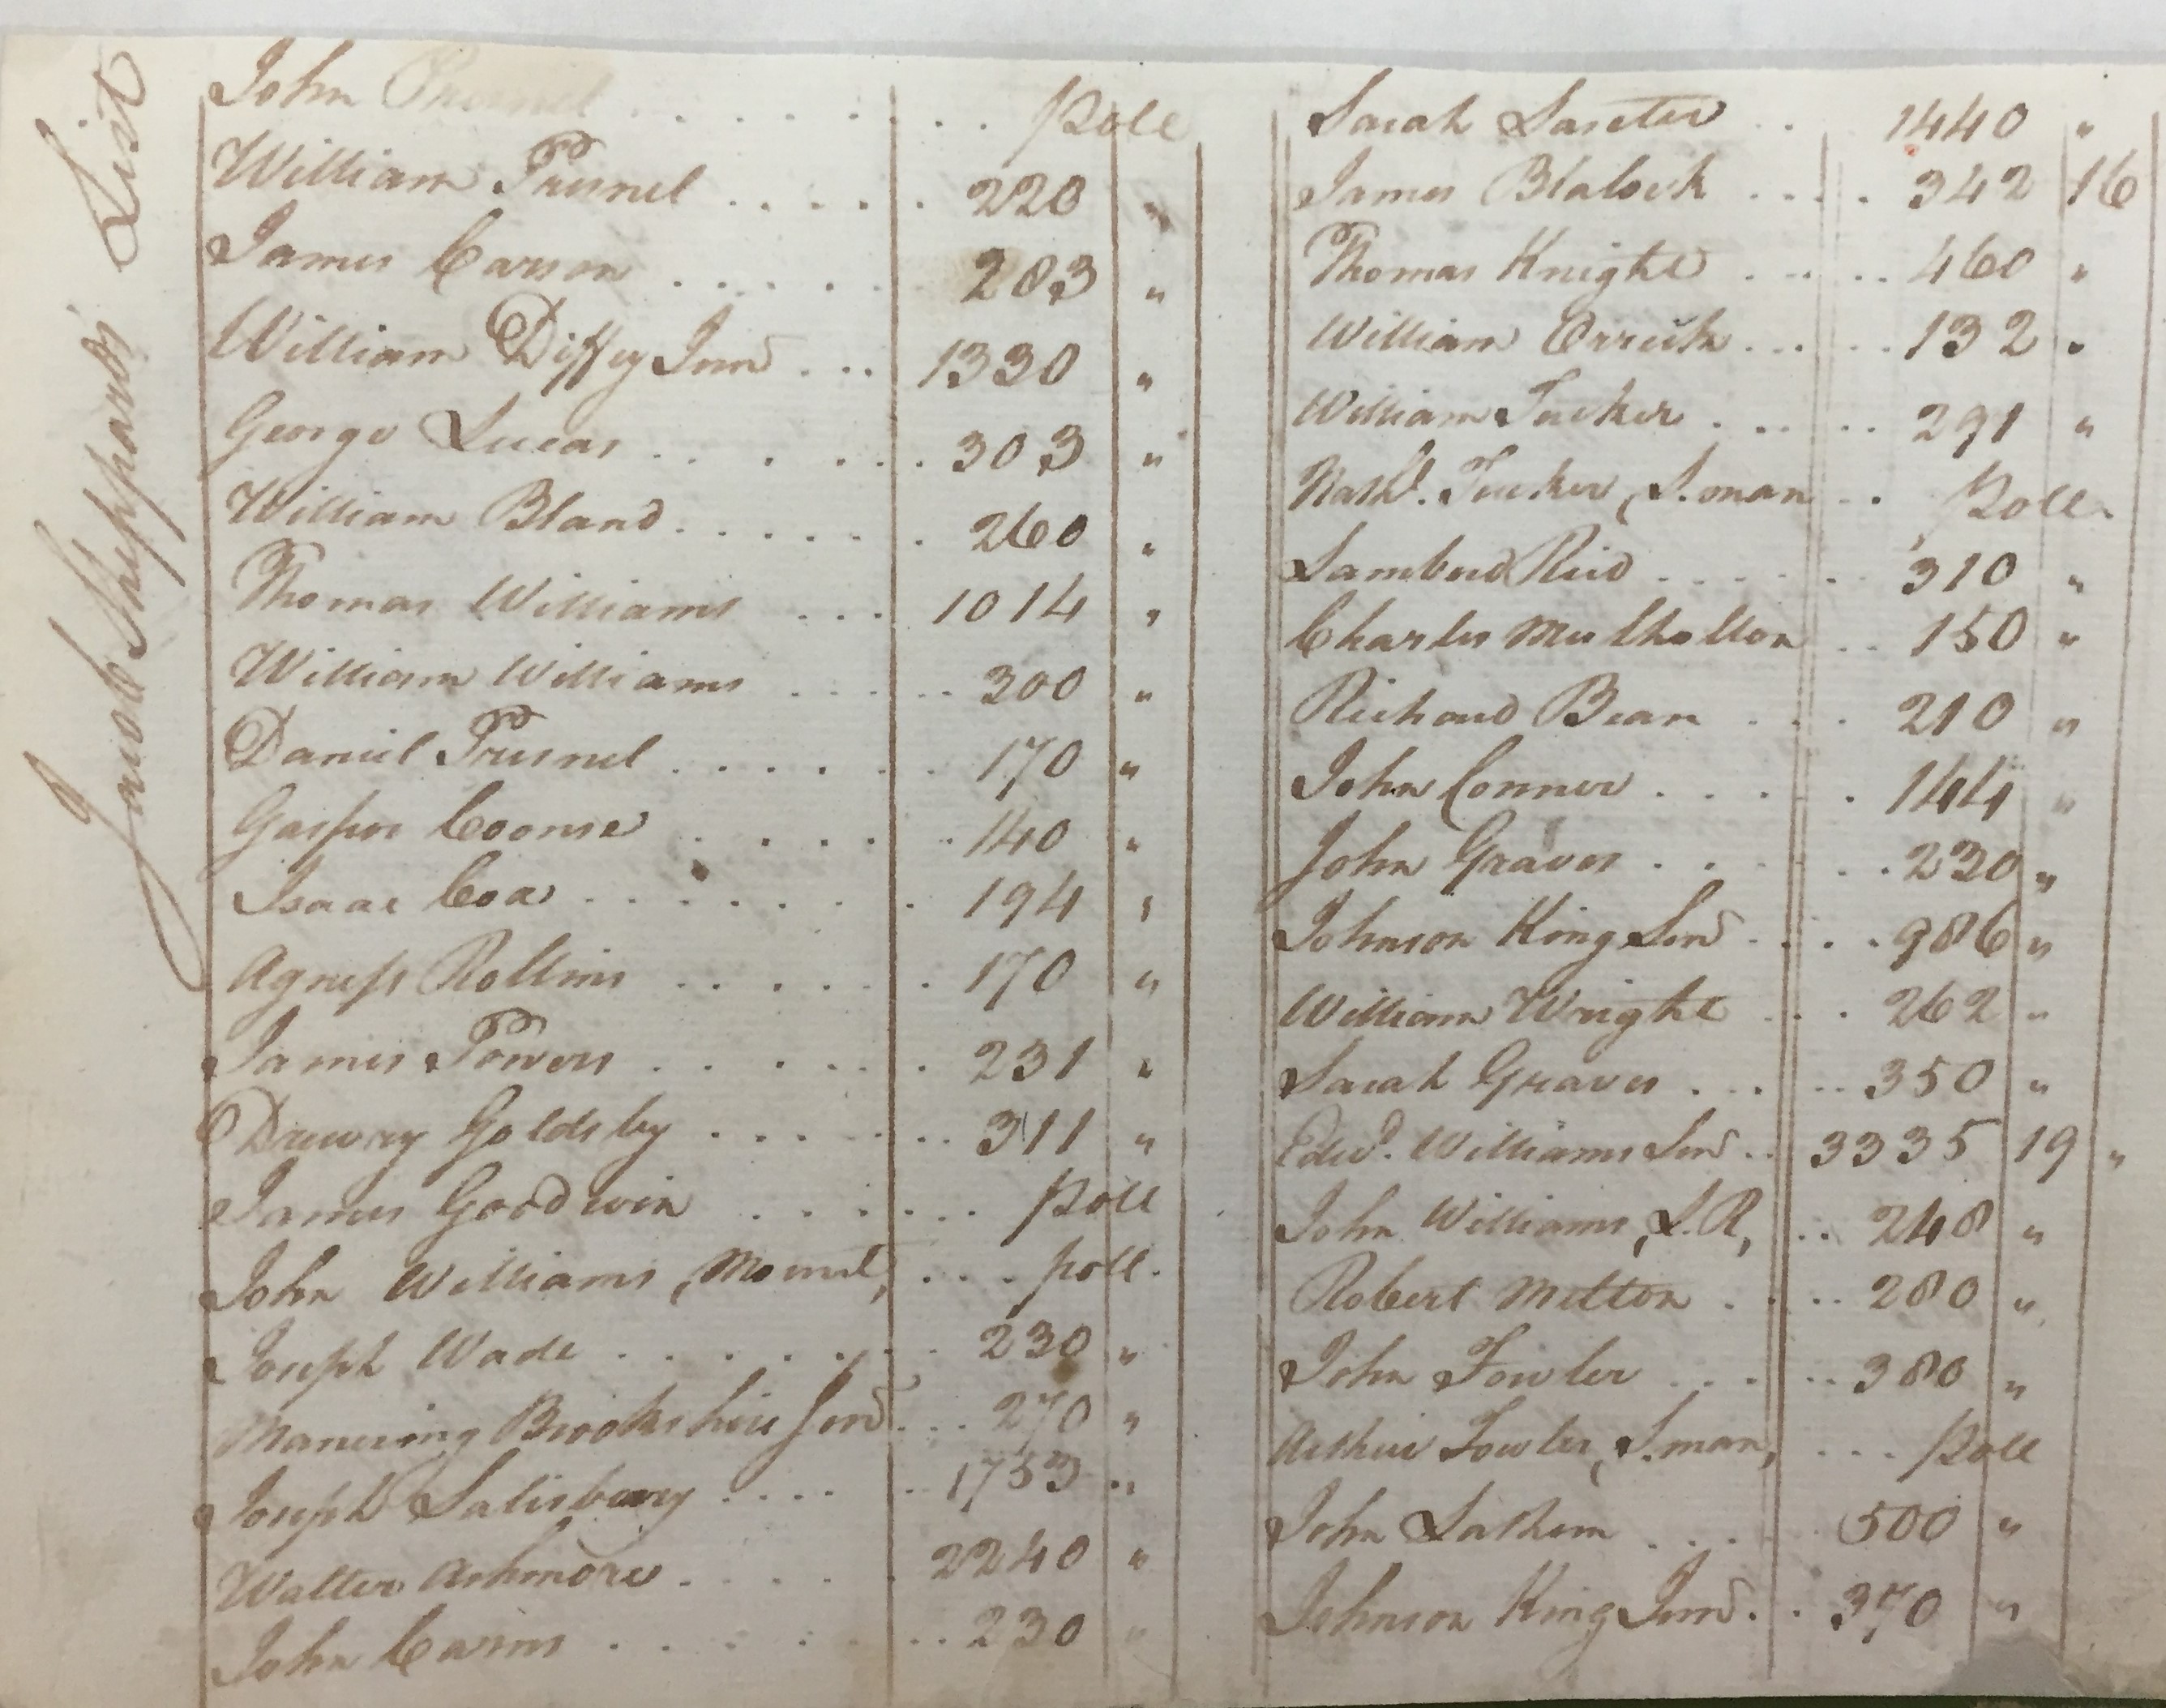 Jacob Sheppard's List
John Presnel . . . . . . . . . Pole
William Presnel . . . . . 220 "
James Carson . . . . . 283 "
William Diffey Junr . . . 1330 "
George Lucas . . . . . . 303 "
William Bland . . . . . . 260 "
Thomas Williams . . . 1014 "
William Williams . . . . . 300 "
Daniel Presnel . . . . . . 170 "
Gasper Coonse . . . . . 140 "
Isaac Coa . . . . . . . 194 "
Agness Rollins . . . . . . 170 "
James Powers . . . . . . 231 "
Drewry Goldsby . . . . . . 311 "
James Goodwin . . . . . . Pole
John Williams, Mount, . . . poll.
Joseph Wade . . . . . . . 230 "
Manering Brookshire Senr . . . 270 "
Joseph Salisbury . . . . . 1753 "
Walter Ashmore . . . . . 2240 "
John Carins . . . . . . . 230 "
Sarah Laseter . . 1440 "
James Blalock . . . . 342 16
Thomas Knight . . . . . 460 "
William Orrick . . . . . 132 "
William Tucker . . . . . 291 "
Nathl. Tucker, S. man . . Pole.
Lamberd Reid . . . . . . 310 "
Charles Mulhollon . . 150 "
Richard Bean . . . . 210 "
John Conner . . . . . 144 "
John Graves . . . . . 230 "
Johnson King Senr . . . . 986 "
William Wright . . . 262 "
Sarah Graves . . . . . 350 "
Edwd. Williams Senr . . 3335 19 "
John Williams, S. R, . . 248 "
Robert Melton . . . . 280 "
John Fowler . . . . . . 380 "
Arthur Fowler, S. man, . . . Pole
John Lathem . . . . 500 "
Johnson King Junr . . 370 "